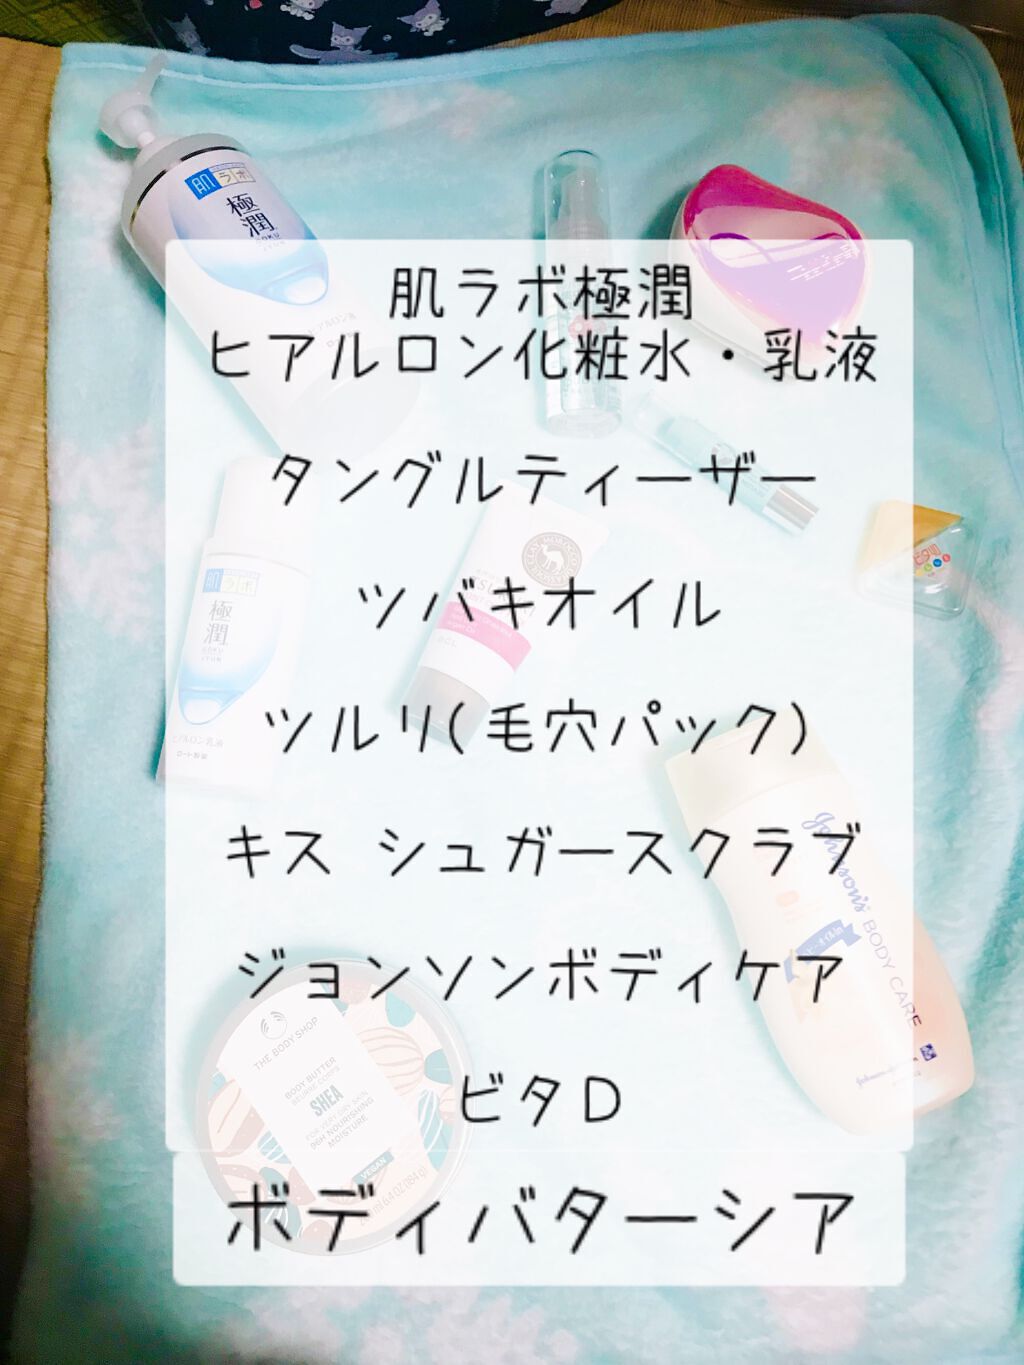 肌ラボ極潤
ヒアルロン化粧水・乳液
タングルティーザー
ツバキオイル
ツルリ(毛穴パック)
キス シュガースクラブ
ジョンソンボディケア
ビタD
ボディバターシア
肌ラボ
極潤
GOKU
JYUN
肌ラボ
極潤
GOKU
JYUN
ヒアルロン乳液
ロート製薬
Johnson's
BODY CARE
THE BODY SHOP
BODY BUTTER
BEURRE CORPS
SHEA
FOR VERY DRY SKIN
96H NOURISHING
MOISTURE
VEGAN